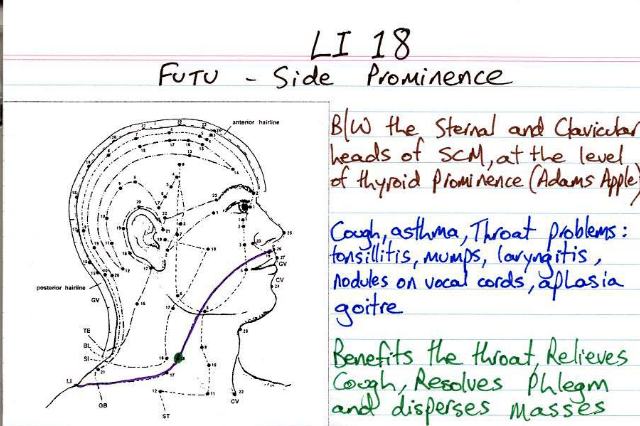 LI 18
FUTU - Side Prominence
B/W the Sternal and Clavicular
heads of SCM, at the level
of thyroid Prominence (Adams Apple)
Cough, asthma, Throat problems:
tonsillitis, mumps, laryngitis,
nodules on vocal cords, aplasia
goitre
Benefits the throat, Relieves
Cough, Resolves Phlegm
and disperses masses
anterior hairline
posterior hairline
GV
TE
BL
SI
LI
GB
ST
CV
GV
CV